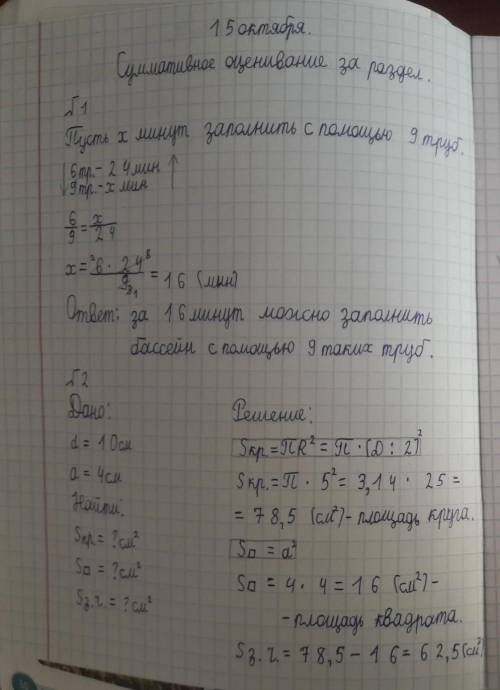 15 октября.
Суммативное оценивание за раздел.
№1
Пусть х минут заполнить с помощью 9 труб.
↓ 6тр.- 24мин ↑
9тр.-х мин
6/9 = х/24
х = 6 · 24 / 9 = 16 (мин)
Ответ: за 16 минут можно заполнить
бассейн с помощью 9 таких труб.
№2
Дано:
d = 10см
a = 4см
Найти:
Sкр = ?см²
S□ = ?см²
Sз.ч. = ?см²
Решение:
Sкр.=ПR² = П·(D:2)²
Sкр.= П · 5² = 3,14 · 25 =
= 78,5 (см²)- площадь круга.
S□ = a²
S□ = 4 · 4 = 16 (см²) -
- площадь квадрата.
Sз.ч. = 78,5 – 16 = 62,5(см²)